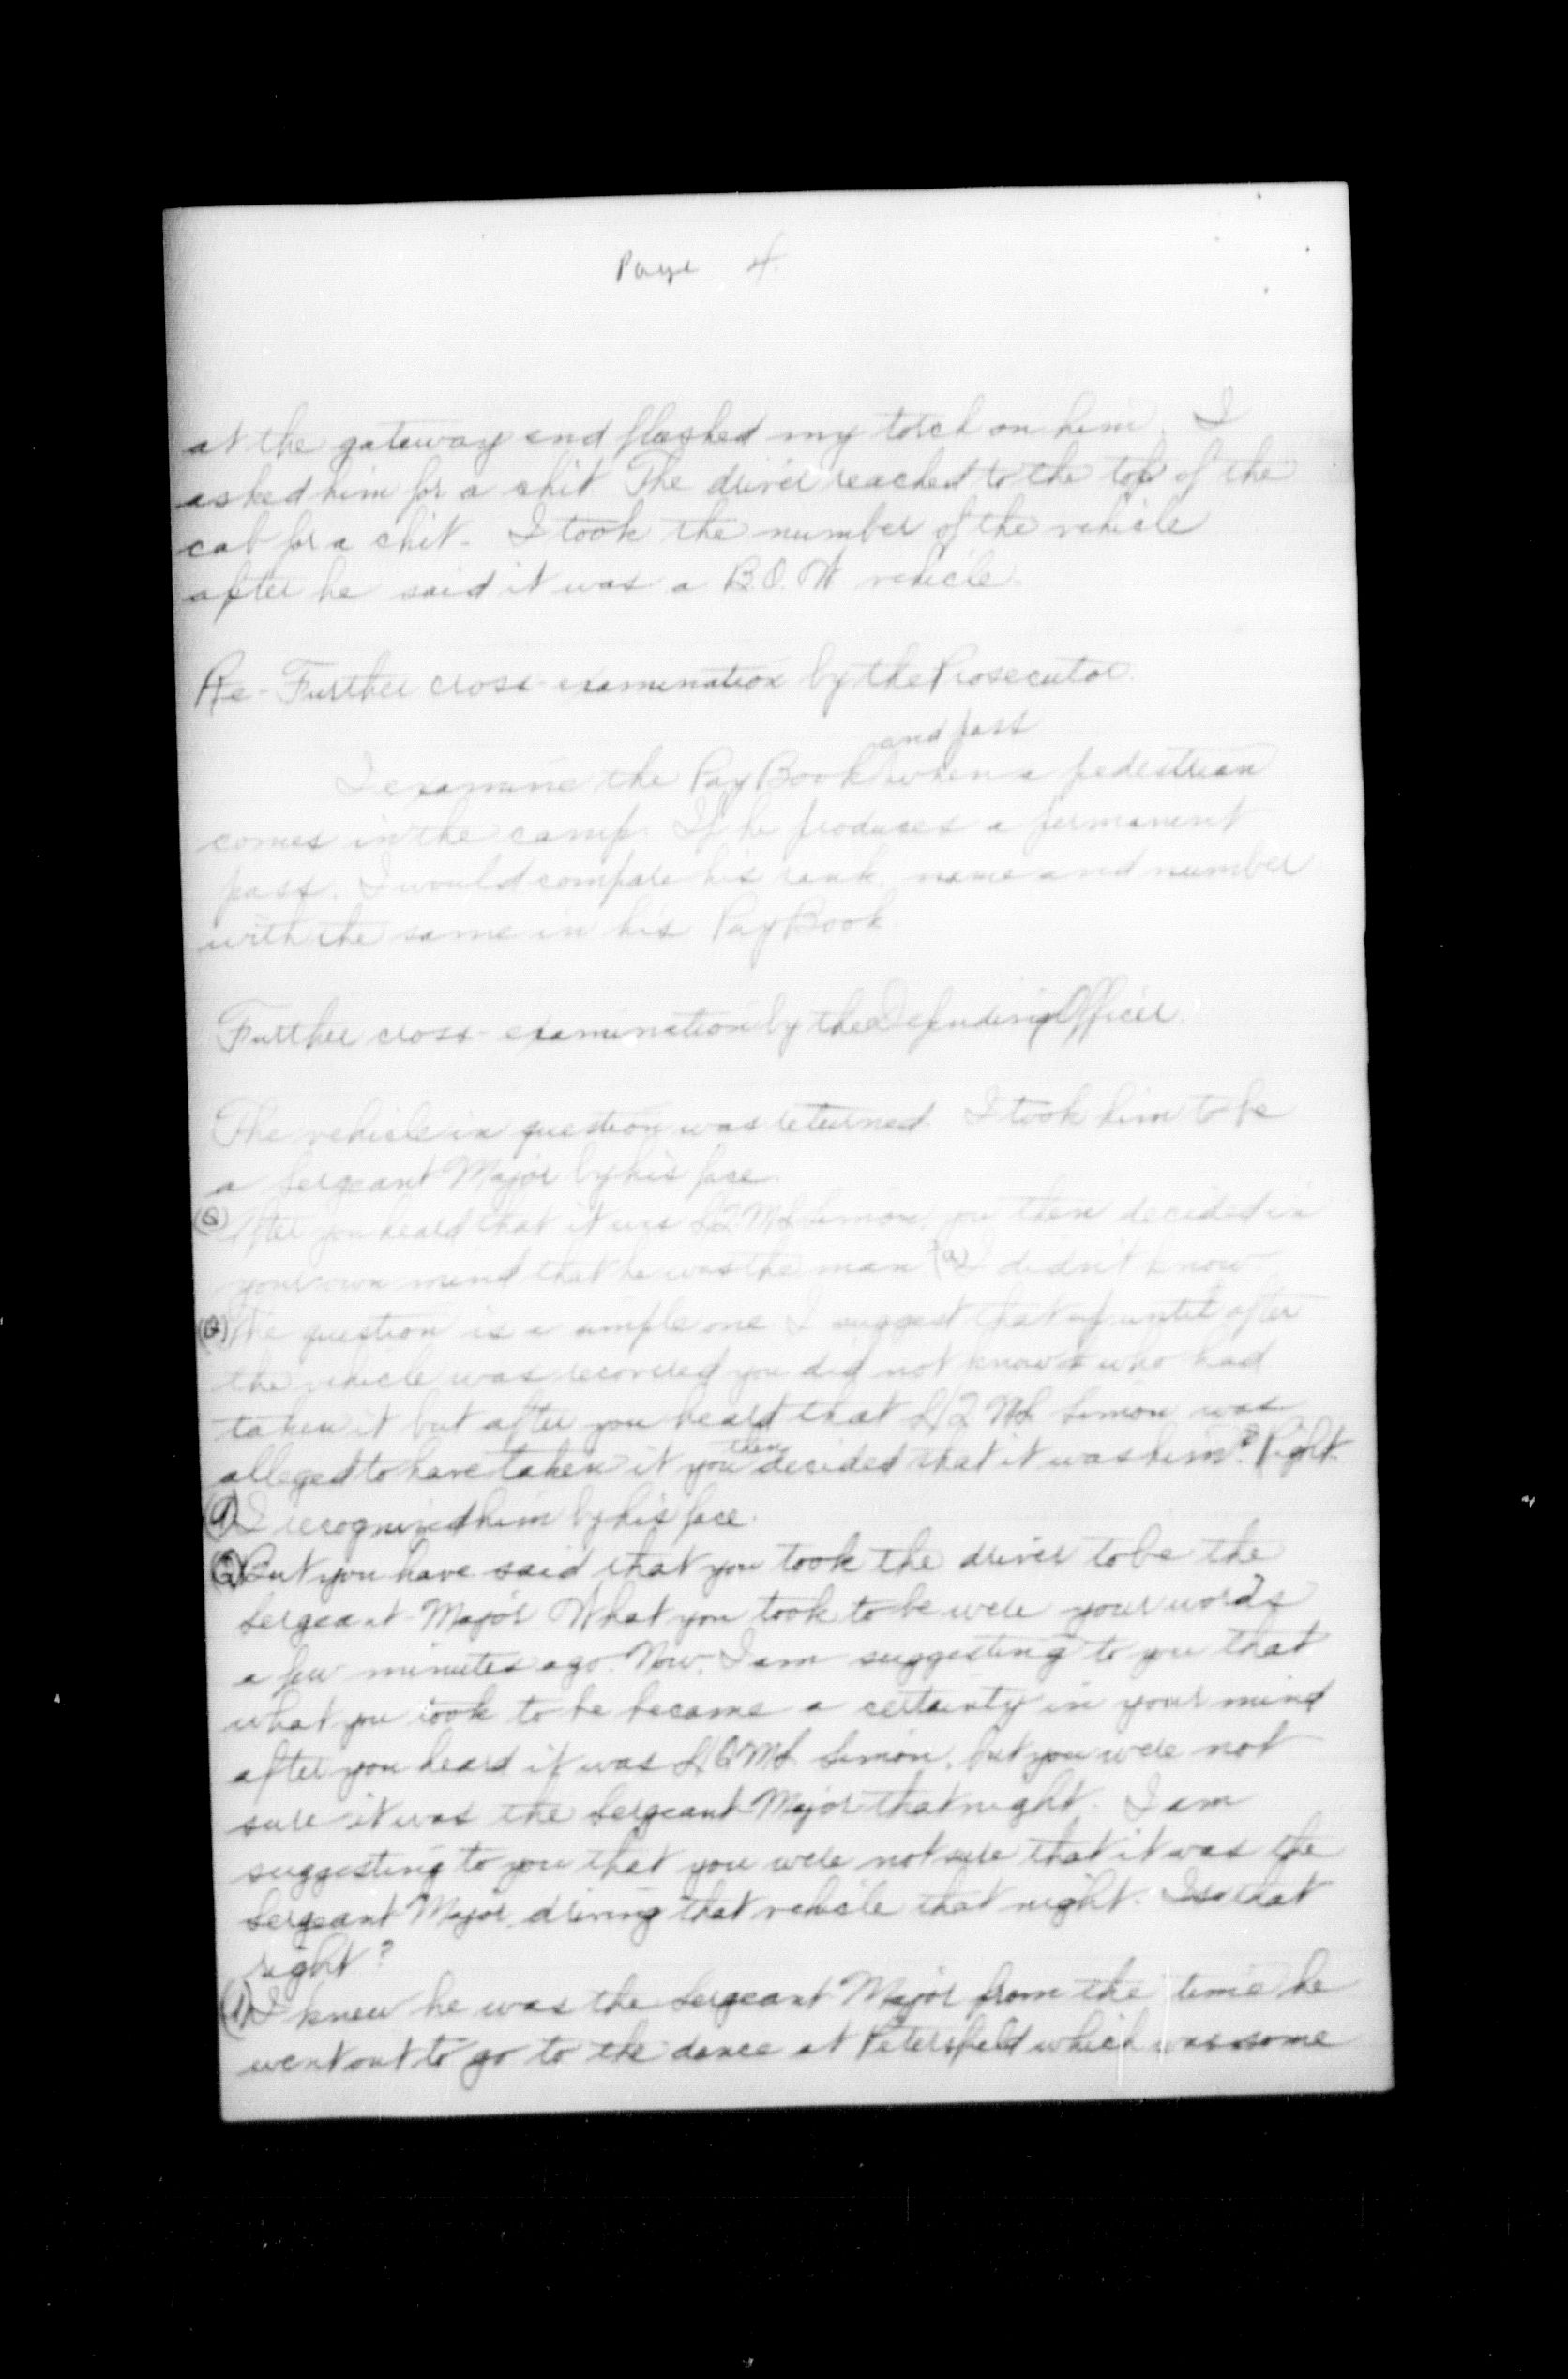 Page 4.
at the gateway and flashed my torch on him. I
asked him for a chit. The driver reached to the top of the
cab for a chit. I took the number of the vehicle
after he said it was a B.O.W vehicle.
Re-Further cross-examination by the Prosecutor.
and pass
I examine the Pay Book when a pedestrian
comes in the camp. If he produces a permanent
pass. I would compare his rank, name and number
with the same in his Pay Book.
Further cross-examination by the Defending Officer.
The vehicle in question was returned. I took him to be
a Sergeant Major by his face.
(Q) After you heard that it was Simon, you then decided in
your own mind that he was the man? (a) I didn't know.
(Q) The question is a simple one. I suggest that up until after
the vehicle was recovered you did not know who had
taken it but after you heard that Simon was
then
alleged to have taken it you decided that it was him? Right.
(A) I recognized him by his face.
(Q) But you have said that you took the driver to be the
Sergeant-Major. What you took to be were your words
a few minutes ago. Now, I am suggesting to you that
what you took to be became a certainty in your mind
after you heard it was Simon, but you were not
sure it was the Sergeant-Major that night. I am
suggesting to you that you were not sure that it was the
Sergeant Major driving that vehicle that night. Is that
right?
(A) I knew he was the Sergeant-Major from the time he
went out to go to the dance at Petersfield which was some